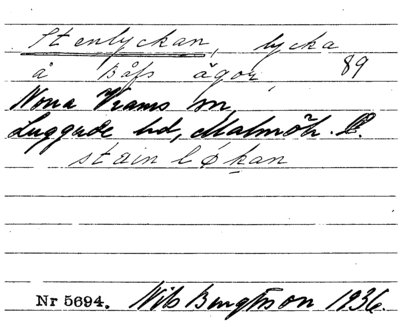 Stenlyckan, lycka
å Båfs ägor, 89
Norra Vrams sn,
Luggude hd, Malmöh. l.
stainløkan
Nr 5694. Nils Bengtsson 1936.